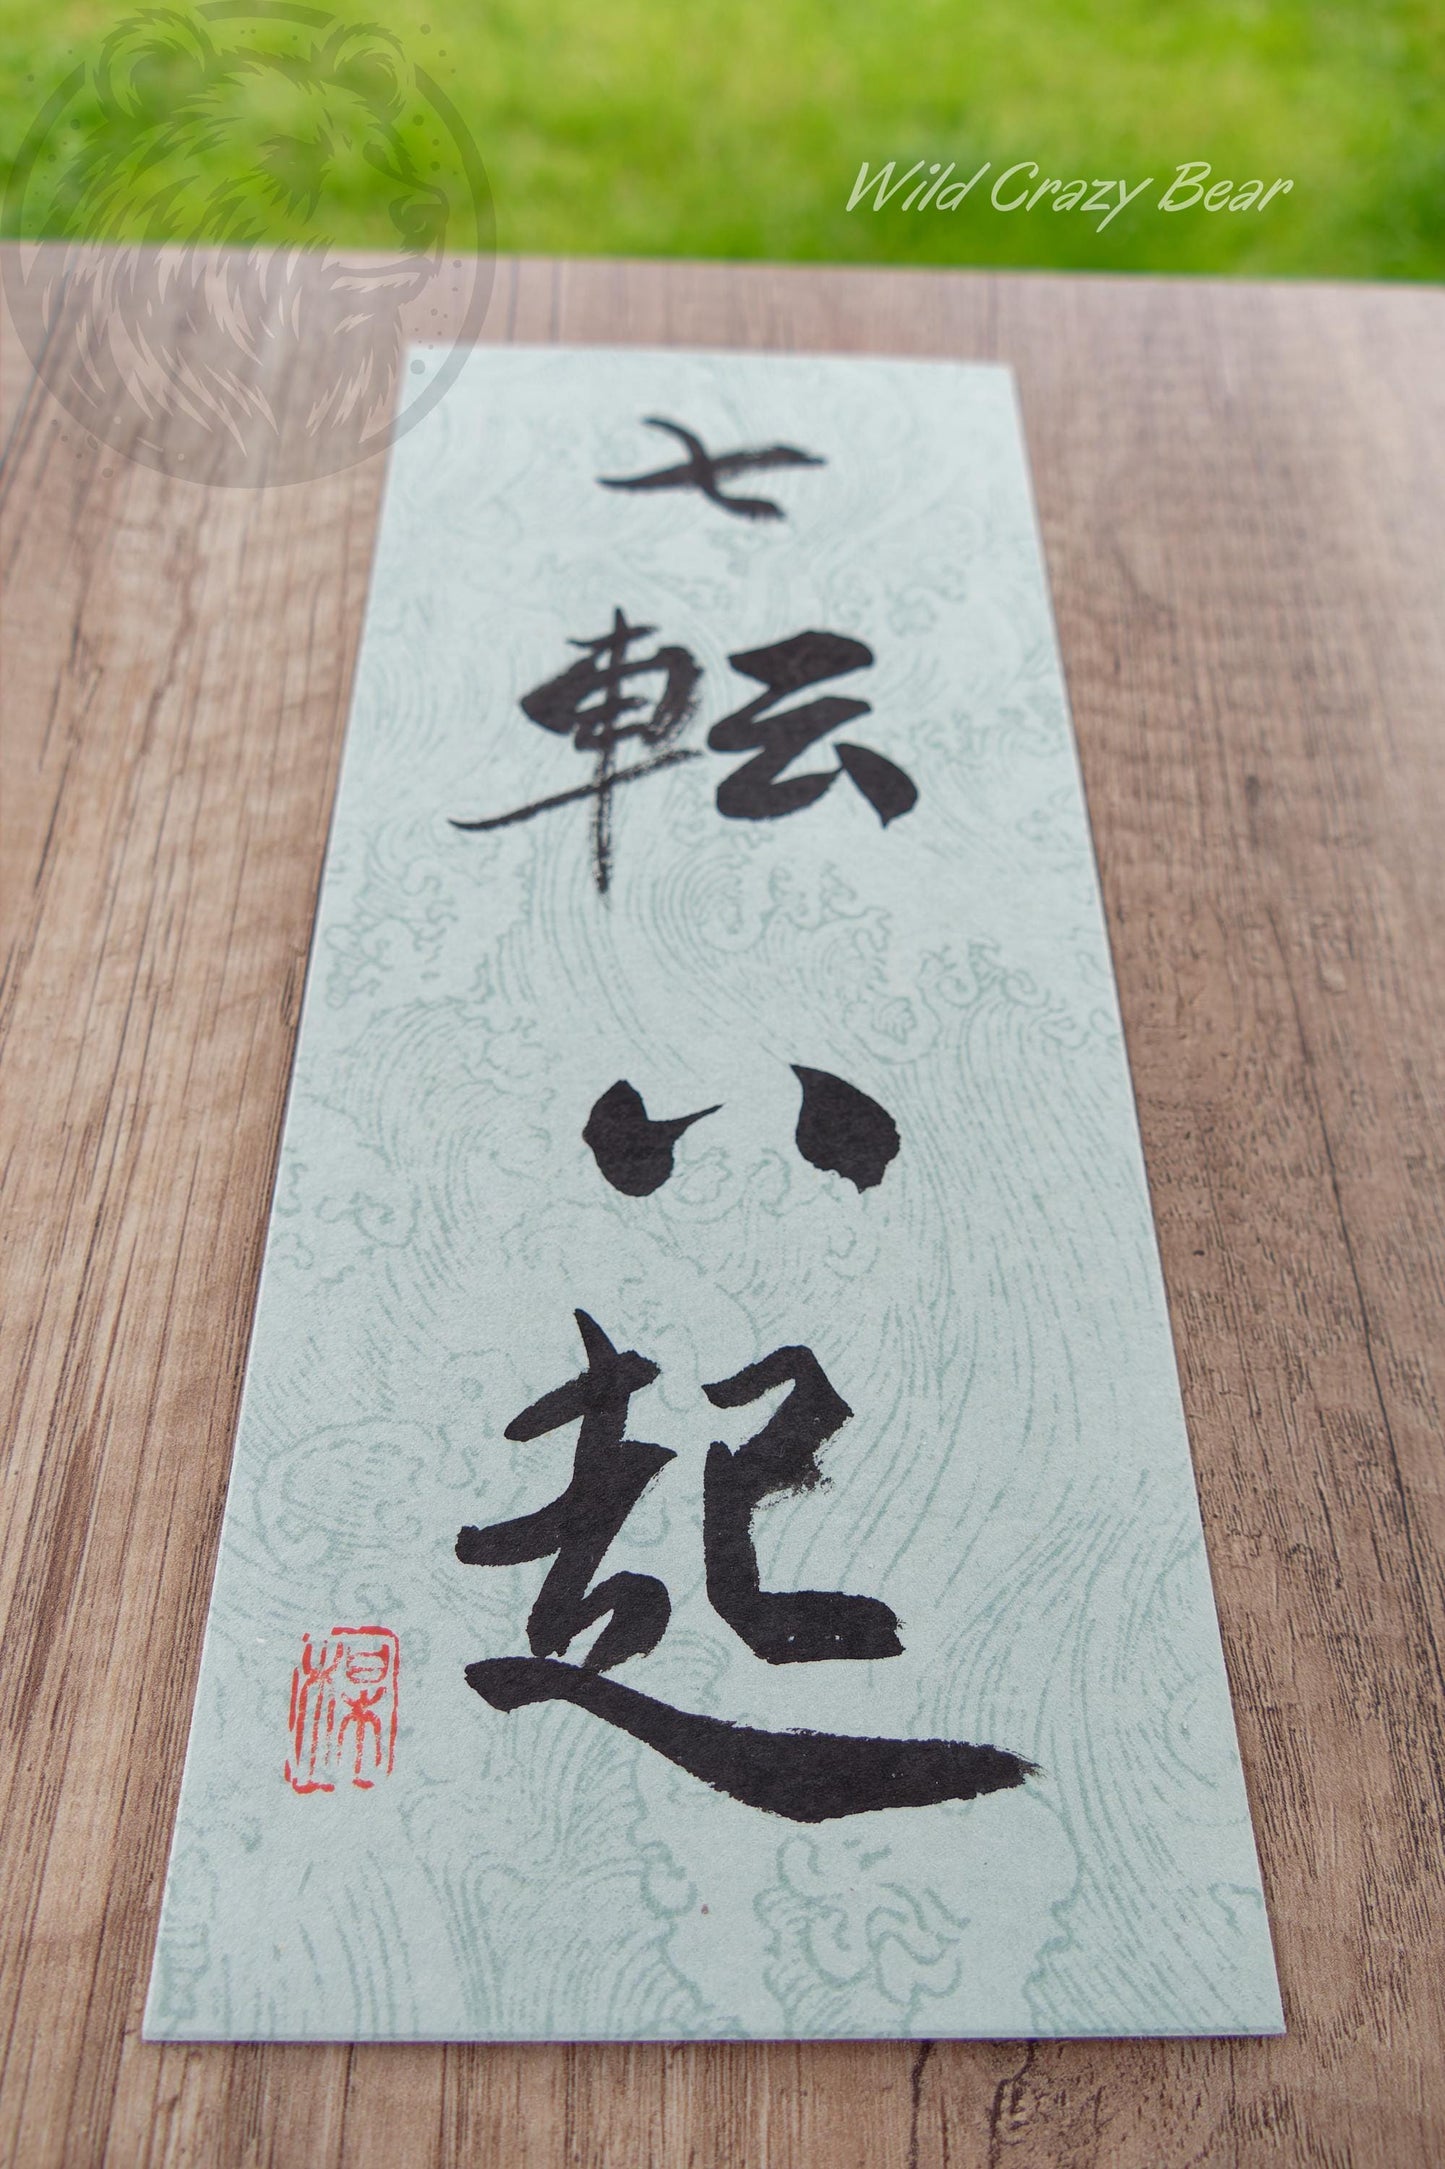 Wild Crazy Bear
七転八起